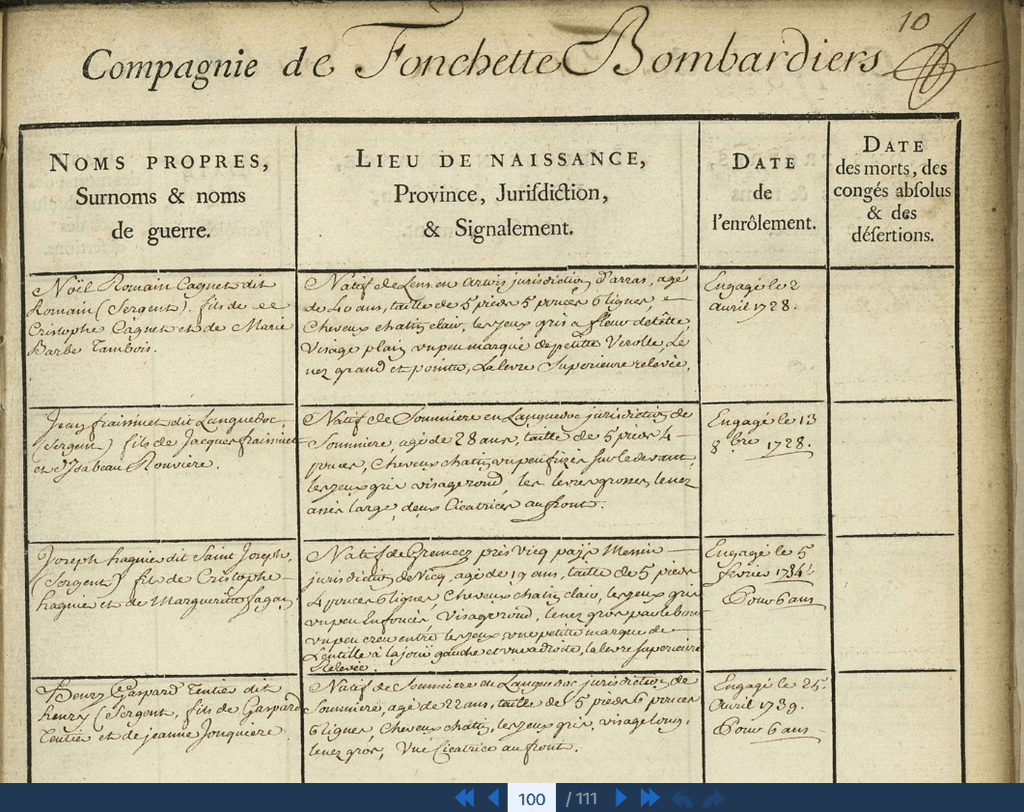 10
Compagnie de Fonchette Bombardiers
NOMS PROPRES,
Surnoms & noms
de guerre.
LIEU DE NAISSANCE,
Province, Jurisdiction,
& Signalement.
DATE
de
l'enrôlement.
DATE
des morts, des
congés absolus
& des
désertions.
Noël Romain Caquet dit
Romain (Sergent). fils de
Cristophe Caquet et de Marie
Barbe Tambois.
Natif de Lens en Artois jurisdiction d'arras, agé
de 40 ans, taille de 5 pieds 5 pouces 6 lignes,
Cheveux chatin clair, les yeux gris a fleur de tête,
Visage plain un peu marqué de petitte Verolle, Le
nez grand et pointu, La levre Superieure relevée.
Engagé le 2
avril 1728.
Jean fraissinet dit Languedoc,
(Sergent) fils de Jacques fraissinet
et d'Isabeau Rouviere.
Natif de Sommiere en Languedoc jurisdiction de
Sommiere, agé de 28 ans, taille de 5 pieds 4
pouces, Cheveux chatin un peu frizés sur le devant,
les yeux gris visage rond, les levres grosses, le nez
assés large, deux Cicatrices au front.
Engagé le 13
8bre 1728.
Joseph hagnie dit Saint Joseph,
(Sergent) fils de Cristophe
hagnie et de Margueritte
Natif de près Vicq païs Messin
jurisdiction de Vicq, agé de 19 ans, taille de 5 pieds
4 pouces 6 lignes, Cheveux chatin clair, les yeux gris
un peu Enfoncés, Visage rond, le nez gros par le bout
un peu creu entre les yeux, une petite marque de
Lentille à la joüe gauche et une a droite, la levre superieure
Relevée.
Engagé le 5
fevrier 1734
Pour 6 ans
Henry Gaspard Tentier dit
henry (Sergent, fils de Gaspard
Tentier et de jeanne Jonquiere.
Natif de Sommiere en Languedoc jurisdiction de
Sommiere, agé de 22 ans, taille de 5 pieds 6 pouces
6 lignes, Cheveux chatin, les yeux gris, visage long,
le nez gros, Une Cicatrice au front.
Engagé le 25.
Avril 1739.
Pour 6 ans
100 / 111